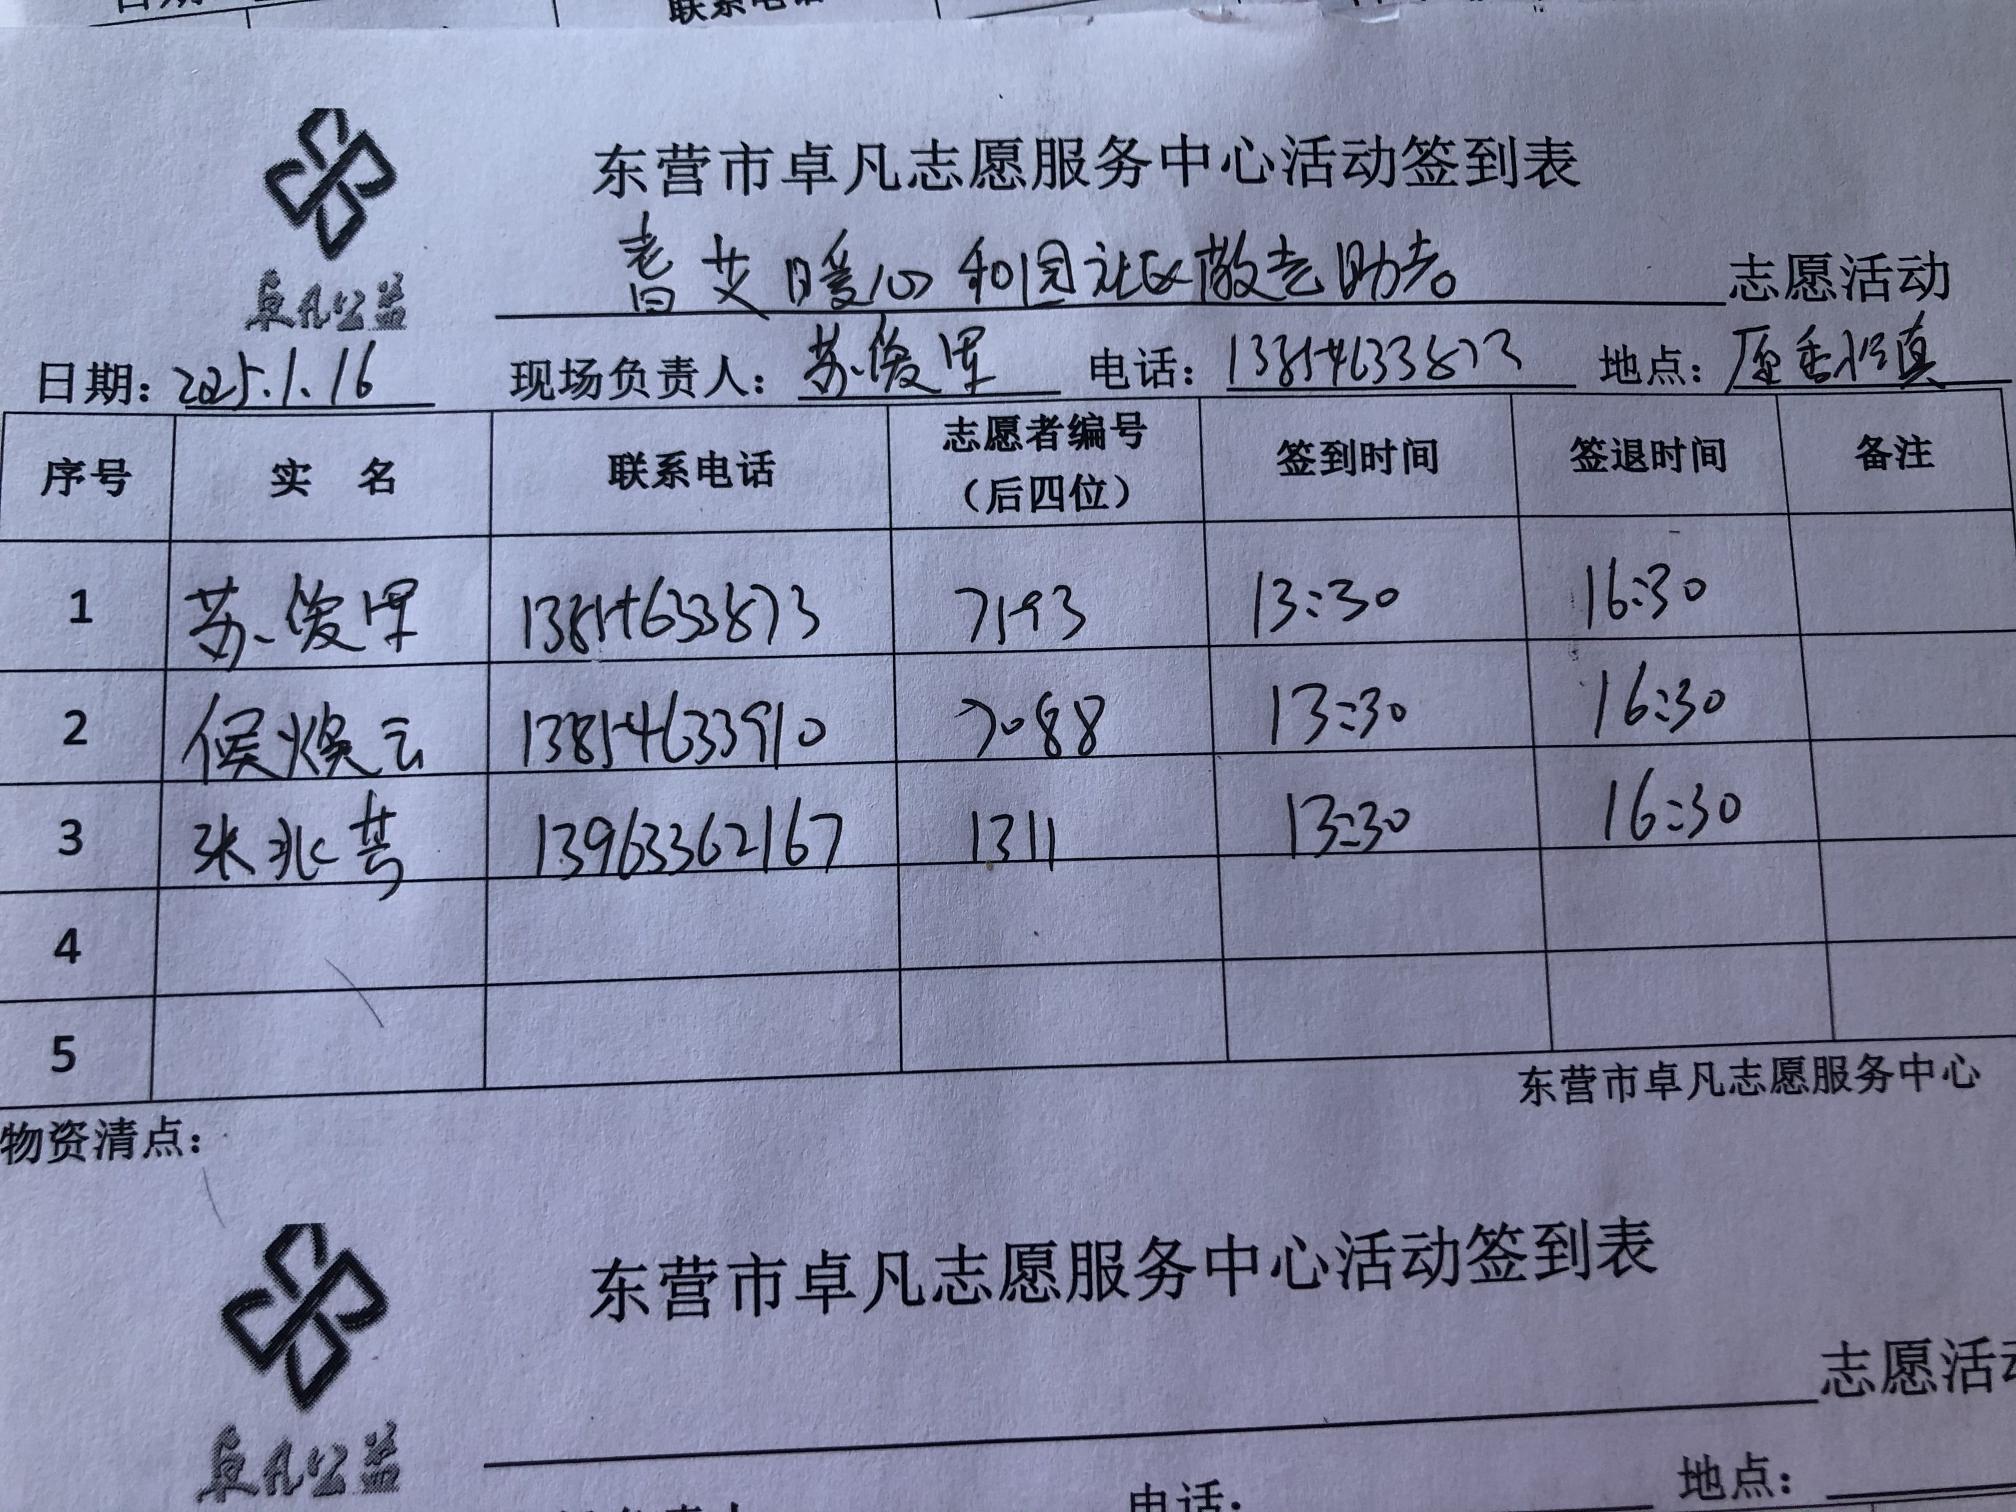 联系电话
东营市卓凡志愿服务中心活动签到表
耆艾暖心和园社区敬老助老 志愿活动
卓凡公益
日期：2025.1.16 现场负责人：苏俊 电话：13854633873 地点：
序号 实 名 联系电话 志愿者编号（后四位） 签到时间 签退时间 备注
1 苏俊 13854633873 7193 13:30 16:30
2 侯焕云 13854633910 7088 13:30 16:30
3 张兆芳 13963362167 1311 13:30 16:30
4
5
东营市卓凡志愿服务中心
物资清点：
东营市卓凡志愿服务中心活动签到表
志愿活动
卓凡公益
电话： 地点：